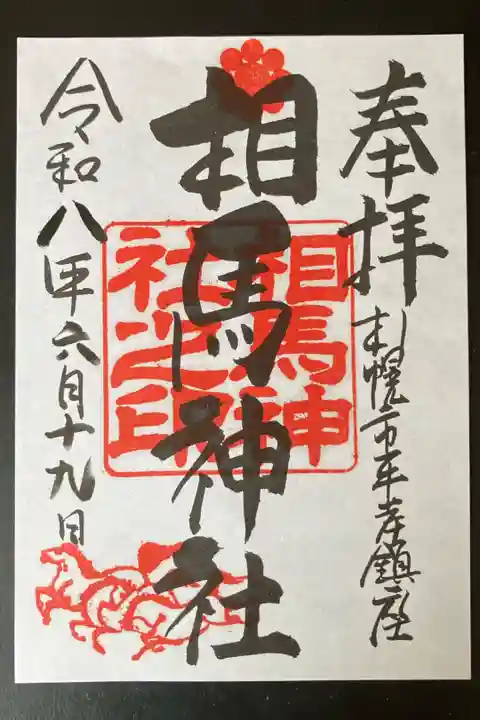 奉拝
札幌市平岸鎮座
相馬神社
相馬神社之印
令和八年六月十九日